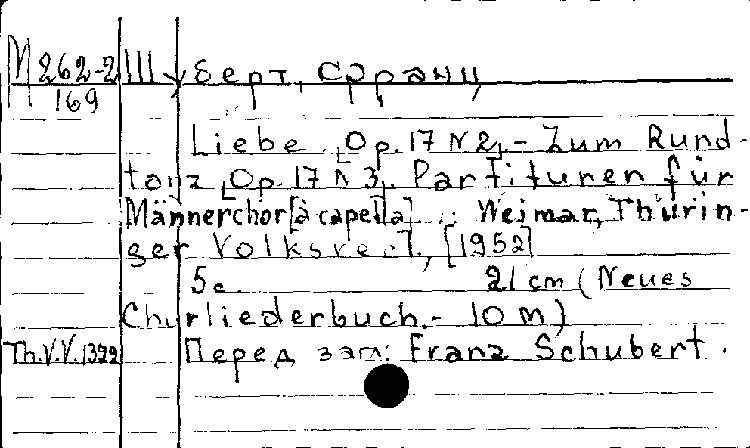 М 262-2 Ш уберт, Франц
169
Liebe [Op. 17 N 2]. - Zum Rund-
tanz [Op. 17 N 3]. Partituren für
Männerchor [à capella]. Weimar, Thürin-
ger Volksverl., [1952]
5 с. 21 cm (Neues
Chorliederbuch. - 10 m)
Th.V.V. 1322 Перед загл: Franz Schubert.